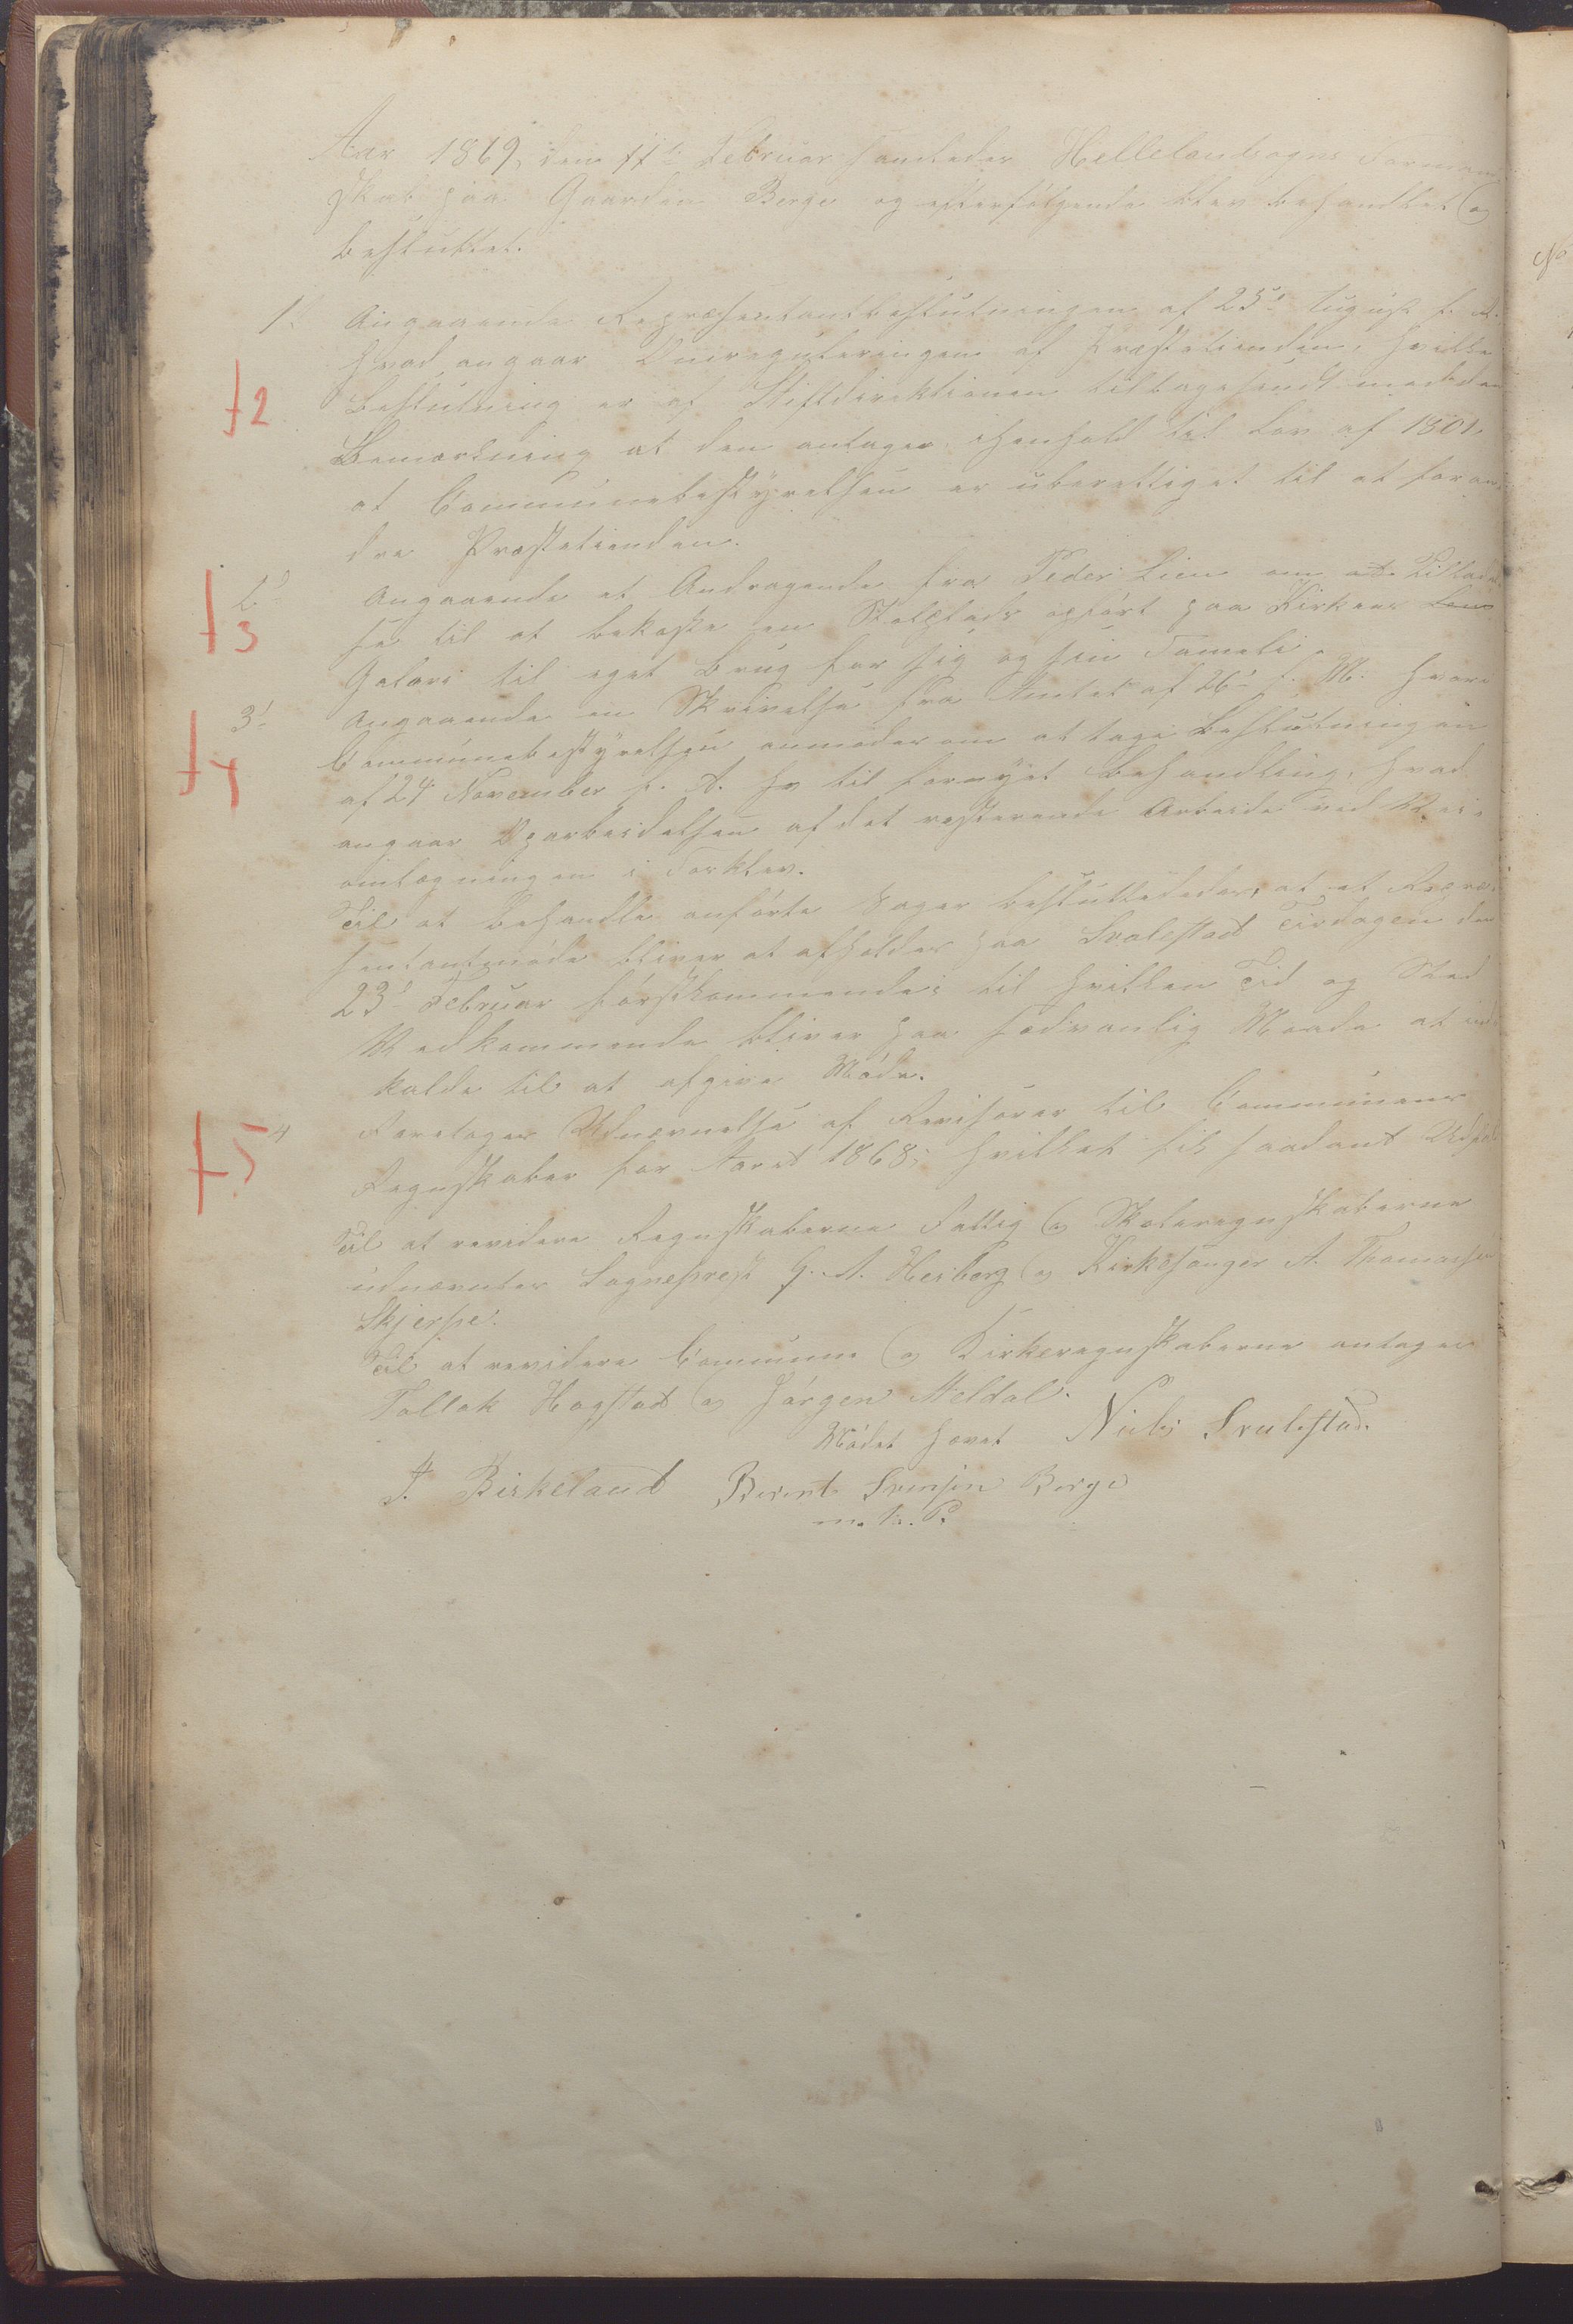 Aar 1869, den 11te Februar samledes Hellelandsogns Forman
skab paa Gaarden Berge og efterfølgende blev behandlet og
besluttet.
1. Angaaende Repræsentantbeslutningen af 25de August f. A.
hvad angaar Omreguleringen af Præstetienden, hvilke
+2
Beslutning er af Stiftdirektionen tilbagesendt med den
Bemærkning at den antager ihenhold til Lov af 1801
at Communebestyrelsen er uberettiget til at foran
dre Præstetienden.
2 Angaaende et Andragende fra Peder Lien om at Tillad
+3
se til at bekoste en Stolplads opført paa Kirkens
Galeri til eget Brug for sig og sin Fameli.
3 Angaaende en Skrivelse fra Amtet af 26 f. M. hvori
+4
Communebestyrelsen anmodes om at tage Beslutningen
af 24 November f. A. til fornyet Behandling, hvad
angaar Oparbeidelsen af det resterende Arbeide ved Vei,
omlægningen i Torklev.
Til at behandle anførte Sager besluttededes, at et Repræ
sentantmøde bliver at afholdes paa Svalestad Tirsdagen den
23 Februar førstkommende; til hvilken Tid og Sted
Vedkommende bliver paa sedvanlig Maade at ind
kalde til at afgive Møde.
4 Foretoges Udnævnelse af Revisorer til Communens
+5
Regnskaber for Aaret 1868, hvilket fik saadant Udfald
Til at revidere Regnskaberne Fattig og Skoleregnskaberne
udnævntes Sogneprest G. A. Heiberg og Kirkesanger A. Thomassen
Skjerpe.
Til at revidere Commune og Kirkeregnskaberne antoges
Tollak Hogstad og Jørgen Meldal.
Mødet hævet Niels Svalestad.
J. Birkeland Berent Svensen Berge
m. h. P.